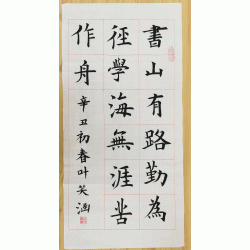 書山有路勤為
徑學海無涯苦
作舟
辛丑初春叶笑涵